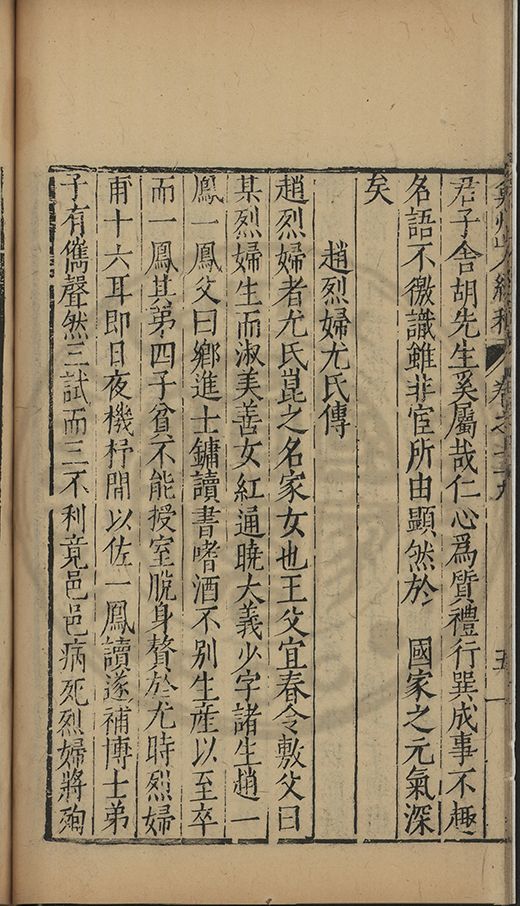 君子舍胡先生奚屬哉仁心爲質禮行巽成事不趣
名語不微識雖非宦所由顯然於 國家之元氣深
矣
趙烈婦尤氏傳
趙烈婦者尤氏崑之名家女也王父宜春令敷父曰
某烈婦生而淑美善女紅通曉大義少字諸生趙一
鳳一鳳父曰鄉進士鏞讀書嗜酒不別生産以至卒
而一鳳其弟四子貧不能授室脫身贅於尤時烈婦
甫十六耳即日夜機杼間以佐一鳳讀遂補博士弟
子有儁聲然三試而三不利竟邑邑病死烈婦將殉